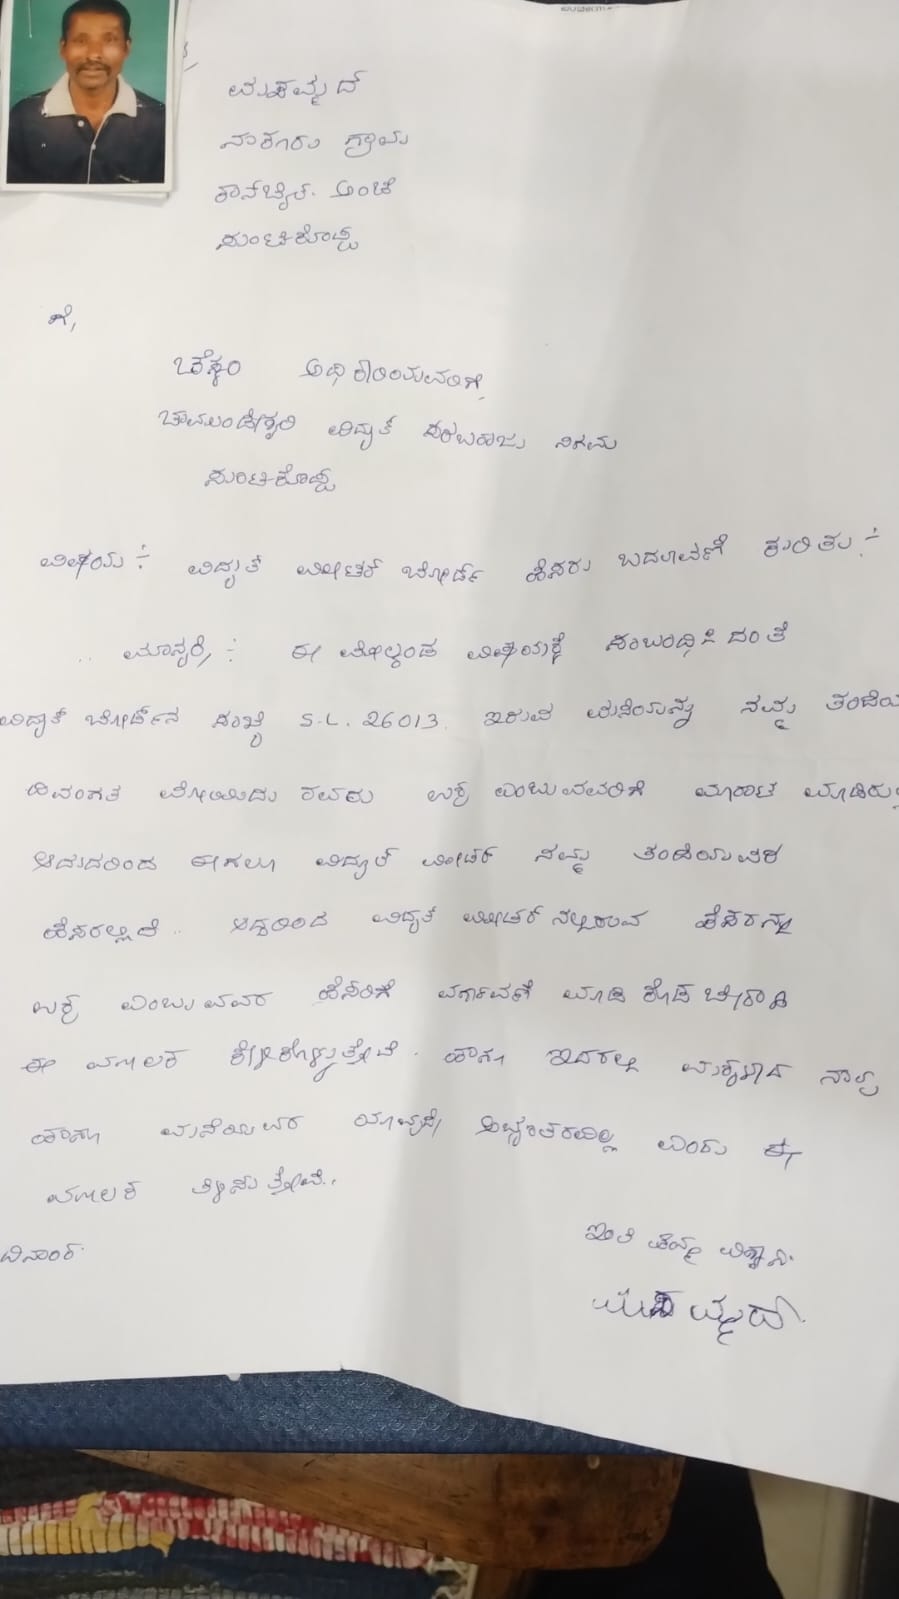 ಮುಹಮ್ಮದ್
ನಾಕೂರು ಗ್ರಾಮ
ಕಾನ್‌ಬೈಲ್. ಅಂಚೆ
ಸುಂಟಿಕೊಪ್ಪ
ಗೆ,
ಅಧಿಕಾರಿಯವರಿಗೆ,
ಚಾಮುಂಡೇಶ್ವರಿ ವಿದ್ಯುತ್ ಸರಬರಾಜು ನಿಗಮ
ಸುಂಟಿಕೊಪ್ಪ
ವಿಷಯ ÷ ವಿದ್ಯುತ್ ಮೀಟರ್ ಬೋರ್ಡ್ ಹೆಸರು ಬದಲಾವಣೆ ಕುರಿತು ÷
ಮಾನ್ಯರೇ, ÷ ಈ ಮೇಲ್ಕಂಡ ವಿಷಯಕ್ಕೆ ಸಂಬಂಧಿಸಿದಂತೆ
ವಿದ್ಯುತ್ ಬೋರ್ಡ್‌ನ ಸಂಖ್ಯೆ S.L. 26013. ಇರುವ ಮನೆಯನ್ನು ನಮ್ಮ ತಂದೆಯ
ದಿವಂಗತ ಮೋಯಿದು ರವರು ಎಂಬುವವರಿಗೆ ಮಾರಾಟ
ಆದುದರಿಂದ ಈಗಲೂ ವಿದ್ಯುತ್ ಮೀಟರ್ ನಮ್ಮ ತಂದೆಯವರ
ಹೆಸರಲ್ಲಿದೆ. ಆದ್ದರಿಂದ ವಿದ್ಯುತ್ ಮೀಟರ್ ನಲ್ಲಿರುವ ಹೆಸರನ್ನು
ಎಂಬುವವರ ಹೆಸರಿಗೆ ವರ್ಗಾವಣೆ ಮಾಡಿ ಕೊಡಬೇಕಾಗಿ
ಈ ಮೂಲಕ ಕೇಳಿಕೊಳ್ಳುತ್ತೇವೆ. ಹಾಗೂ ಇದರಲ್ಲಿ ನಾನು
ಹಾಗೂ ಮನೆಯವರ ಯಾವುದೇ ಅಭ್ಯಂತರವಿಲ್ಲ ಎಂದು ಈ
ಮೂಲಕ ತಿಳಿಸುತ್ತೇವೆ..
ದಿನಾಂಕ
ಇಂತಿ ತಮ್ಮ ವಿಶ್ವಾಸಿ.
ಮುಹಮ್ಮದ್.